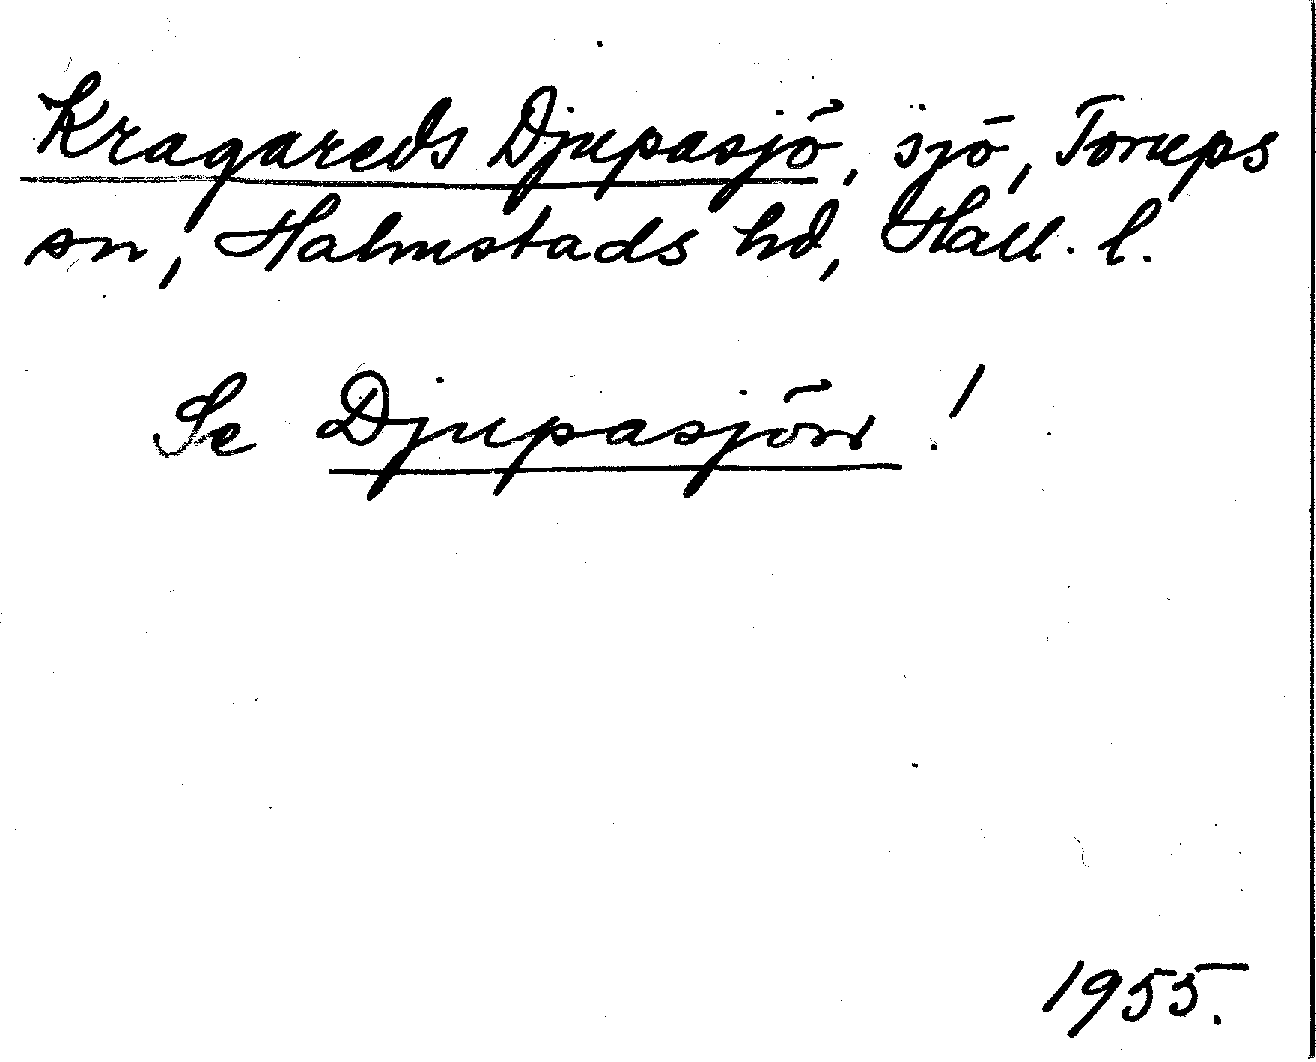 Kragareds Djupasjö, sjö, Torups
sn, Halmstads hd, Hall. l.
Se Djupasjön!
1955.